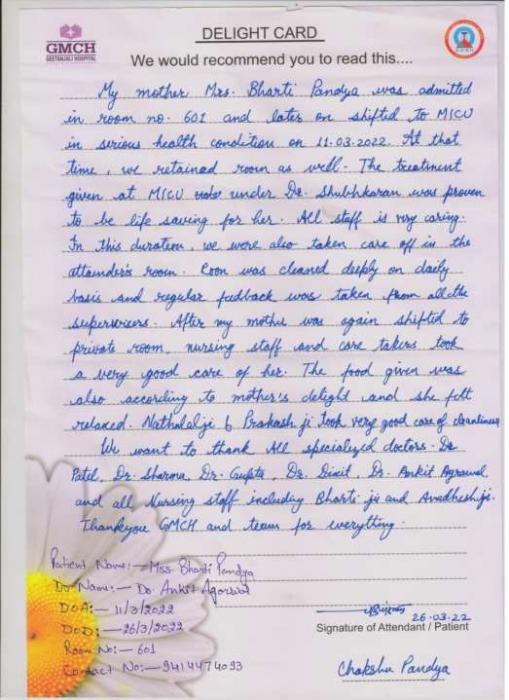 GMCH
GEETANJALI HOSPITAL
DELIGHT CARD
We would recommend you to read this....
My mother Mrs. Bharti Pandya was admitted
in room no. 601 and later on shifted to MICU
in serious health condition on 11.03.2022. At that
time, we retained room as well. The treatment
given at MICU under Dr. Shubhkaran was proven
to be life saving for her. All staff is very caring.
In this duration, we were also taken care off in the
attainder's room. Room was cleaned deeply on daily
basis and regular feedback was taken from all the
superwisers. After my mother was again shifted to
private room, nursing staff and care takers took
a very good care of her. The food given was
also according to mother's delight and she felt
relaxed. Nathulalji & Prakash ji took very good care of cleanliness
We want to thank All specialized doctors. Dr
Patel, Dr. Sharma, Dr. Gupta, Dr. Dixit, Dr. Ankit Agrawal,
and all Nursing staff including Bharti ji and Avadhesh ji.
Thankyou GMCH and team for everything.
Patient Name:- Mss Bharti Pandya
Dr Name:- Do. Ankit Agarwal
DOA:- 11/3/2022
DOD:- 26/3/2022
Room No:- 601
Contact No:- 9414474093
26.03.22
Signature of Attendant / Patient
Chakshu Pandya